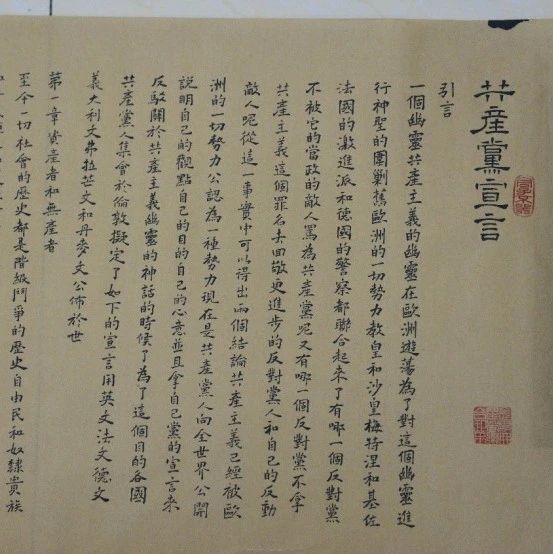 共產黨宣言
引言
一個幽靈共產主義的幽靈在歐洲遊蕩為了對這個幽靈進
行神聖的圍剿舊歐洲的一切勢力教皇和沙皇梅特涅和基佐
法國的激進派和德國的警察都聯合起來了有哪一個反對黨
不被它的當政的敵人罵為共產黨呢又有哪一個反對黨不拿
共產主義這個罪名去回敬更進步的反對黨人和自己的反動
敵人呢從這一事實中可以得出兩個結論共產主義已經被歐
洲的一切勢力公認為一種勢力現在是共產黨人向全世界公開
說明自己的觀點自己的目的自己的心意並且拿自己黨的宣言來
反駁關於共產主義幽靈的神話的時候了為了這個目的各國
共產黨人集會於倫敦擬定了如下的宣言用英文法文德文
義大利文弗拉芒文和丹麥文公佈於世
第一章資產者和無產者
至今一切社會的歷史都是階級鬥爭的歷史自由民和奴隸貴族